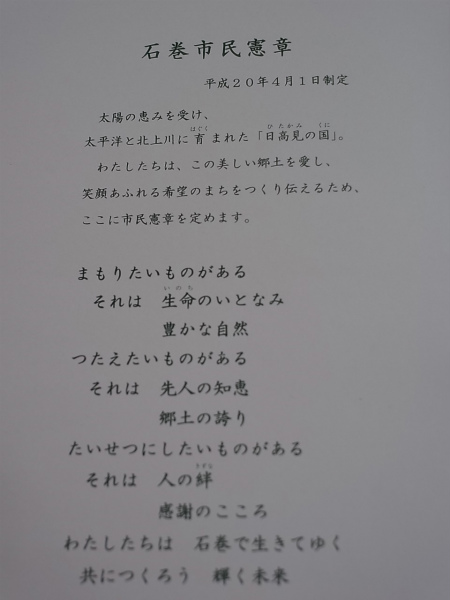 石巻市民憲章
平成20年4月1日制定
太陽の恵みを受け、
太平洋と北上川に育まれた「日高見の国」。
わたしたちは、この美しい郷土を愛し、
笑顔あふれる希望のまちをつくり伝えるため、
ここに市民憲章を定めます。
まもりたいものがある
それは　生命のいとなみ
豊かな自然
つたえたいものがある
それは　先人の知恵
郷土の誇り
たいせつにしたいものがある
それは　人の絆
感謝のこころ
わたしたちは　石巻で生きてゆく
共につくろう　輝く未来